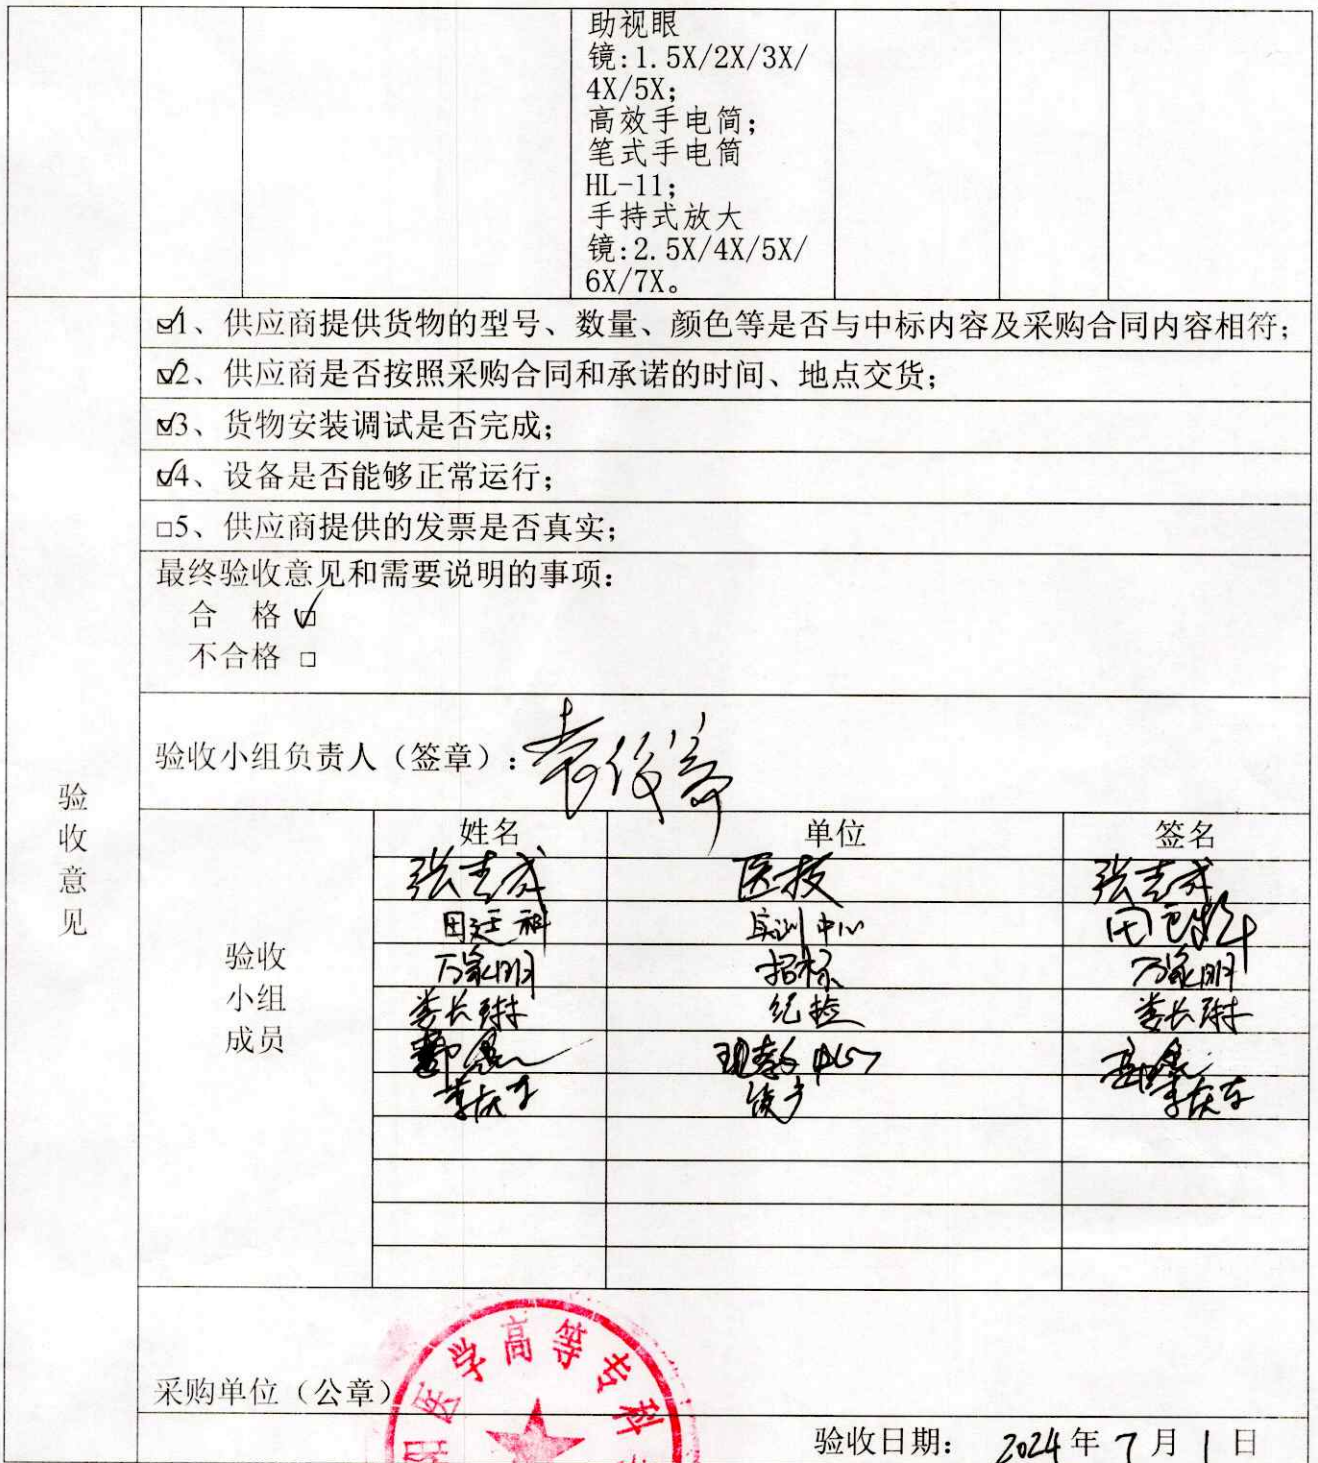 助视眼
镜:1.5X/2X/3X/
4X/5X;
高效手电筒;
笔式手电筒
HL-11;
手持式放大
镜:2.5X/4X/5X/
6X/7X。
☑1、供应商提供货物的型号、数量、颜色等是否与中标内容及采购合同内容相符;
☑2、供应商是否按照采购合同和承诺的时间、地点交货;
☑3、货物安装调试是否完成;
☑4、设备是否能够正常运行;
□5、供应商提供的发票是否真实;
最终验收意见和需要说明的事项:
合 格 ☑
不合格 □
验收小组负责人（签章）:
验收意见
姓名 单位 签名
张志成 医技 张志成
田廷科 实训中心
万家明 招标 万家明
娄长群 纪检 娄长群
现教中心
李庆东 李庆东
验收
小组
成员
医学高等专科
采购单位（公章）
验收日期: 2024年7月1日